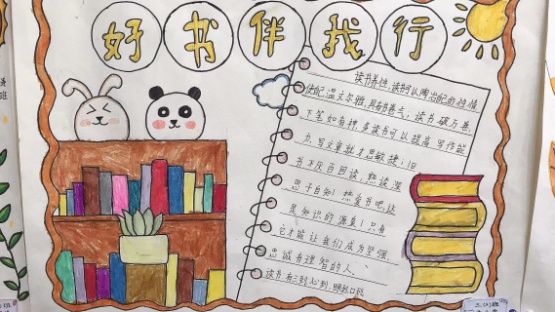 好书伴我行
读书养性,读书可以陶冶自己的性情
使自己温文尔雅,具有书卷气;读书破万卷,
下笔如有神,多读书可以提高写作能
力,写文章就才思敏捷;旧
书不厌百回读,熟读深
思子自知!热爱书吧,这
是知识的源泉!只有
它才能让我们成为坚强,
忠诚有理智的人、
读书有三到心到,眼到口到